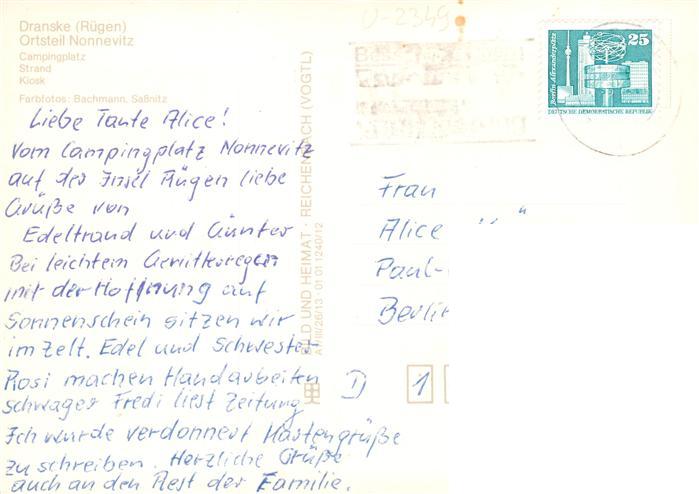 Dranske (Rügen)
Ortsteil Nonnevitz
Campingplatz
Strand
Kiosk
Farbfotos: Bachmann, Saßnitz
U-2349
Berlin Alexanderplatz
25
DEUTSCHE DEMOKRATISCHE REPUBLIK
BILD UND HEIMAT · REICHENBACH (VOGTL)
A1/III/26/13 01 01 1240/12
Liebe Tante Alice!
Vom Campingplatz Nonnevitz
auf der Insel Rügen liebe
Grüße von
Edeltrand und Günter
Bei leichtem Gewitterregen
mit der Hoffnung auf
Sonnenschein sitzen wir
im Zelt. Edel und Schwester
Rosi machen Handarbeiten
Schwager Fredi liest Zeitung
Ich wurde verdonnert Kartengrüße
zu schreiben. Herzliche Grüße
auch an den Rest der Familie.
Frau
Alice
Paul-
Berlin
D 1